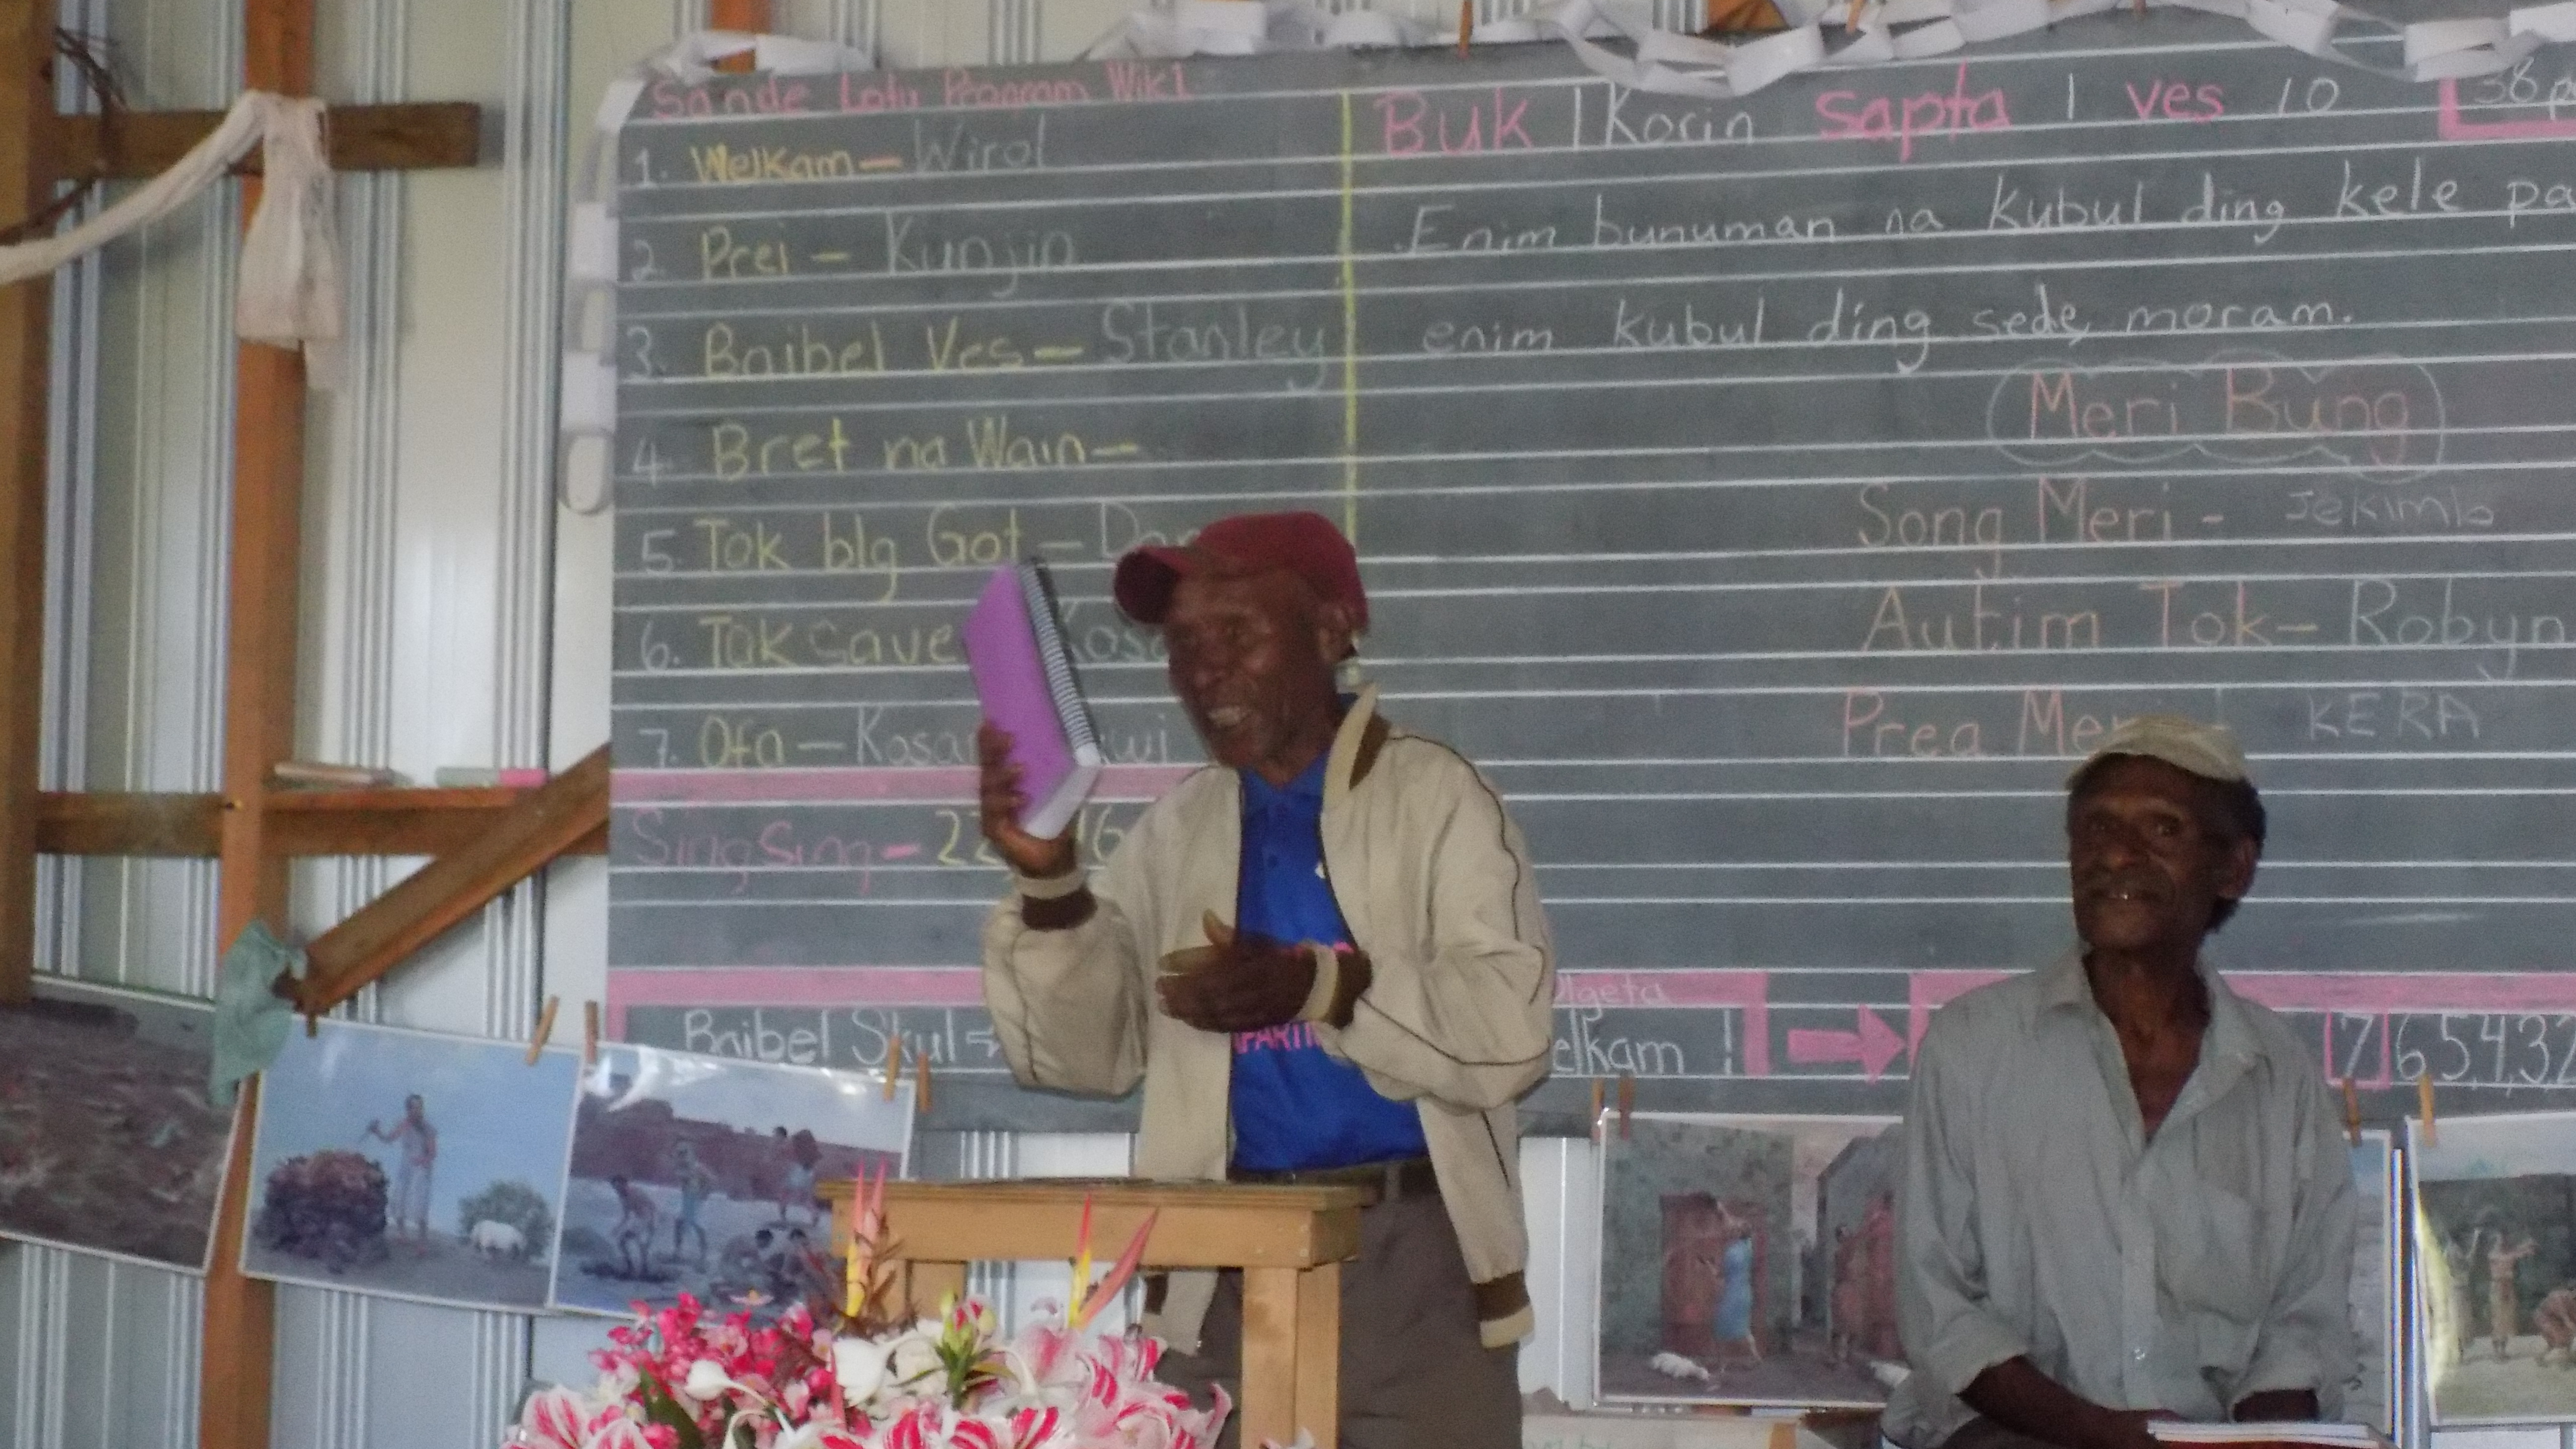 Sande Lotu Program Wik1
1. Welkam – Wirol
2. Prei – Kunjin
3. Baibel Ves – Stanley
4. Bret na Wain –
5. Tok blg Got –
6. Tok save
7. Ofa –
Sing Sing –
Baibel Skul
Buk 1 Korin Sapta 1 ves 10
Enim bunuman na kubul ding kele
enim kubul ding sede moram.
Meri Bung
Song Meri - Jekimla
Autim Tok – Robyn
Prea - KERA
olgeta
!
7 6,5,4,3,2